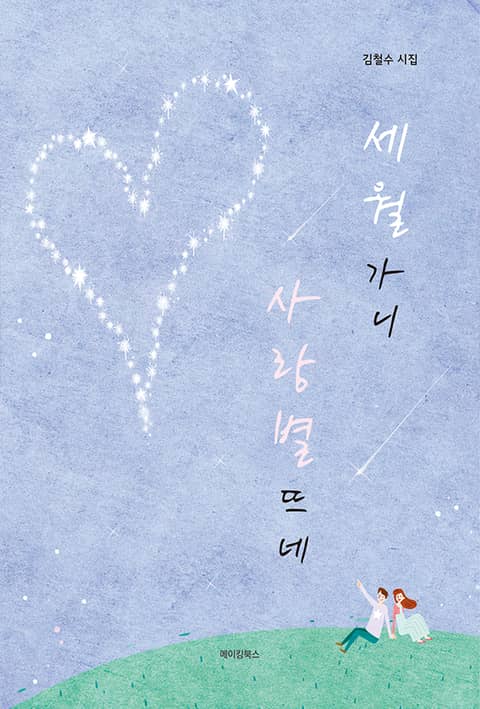 김철수 시집
세월
가니
사랑별
뜨네
메이킹북스